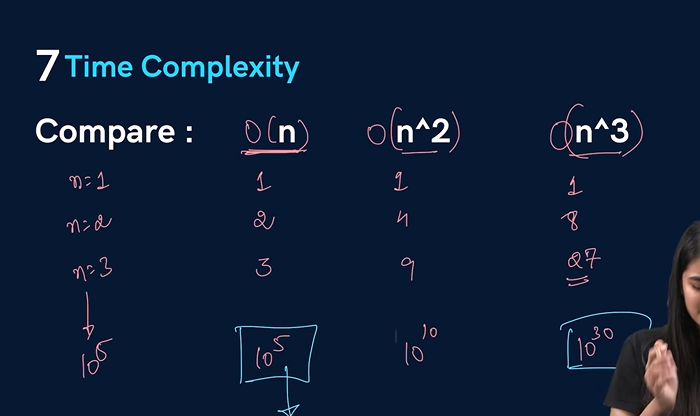 7 Time Complexity
Compare : O(n) O(n^2) O(n^3)
n=1 1 1 1
n=2 2 4 8
n=3 3 9 27
10^5 10^5 10^10 10^30